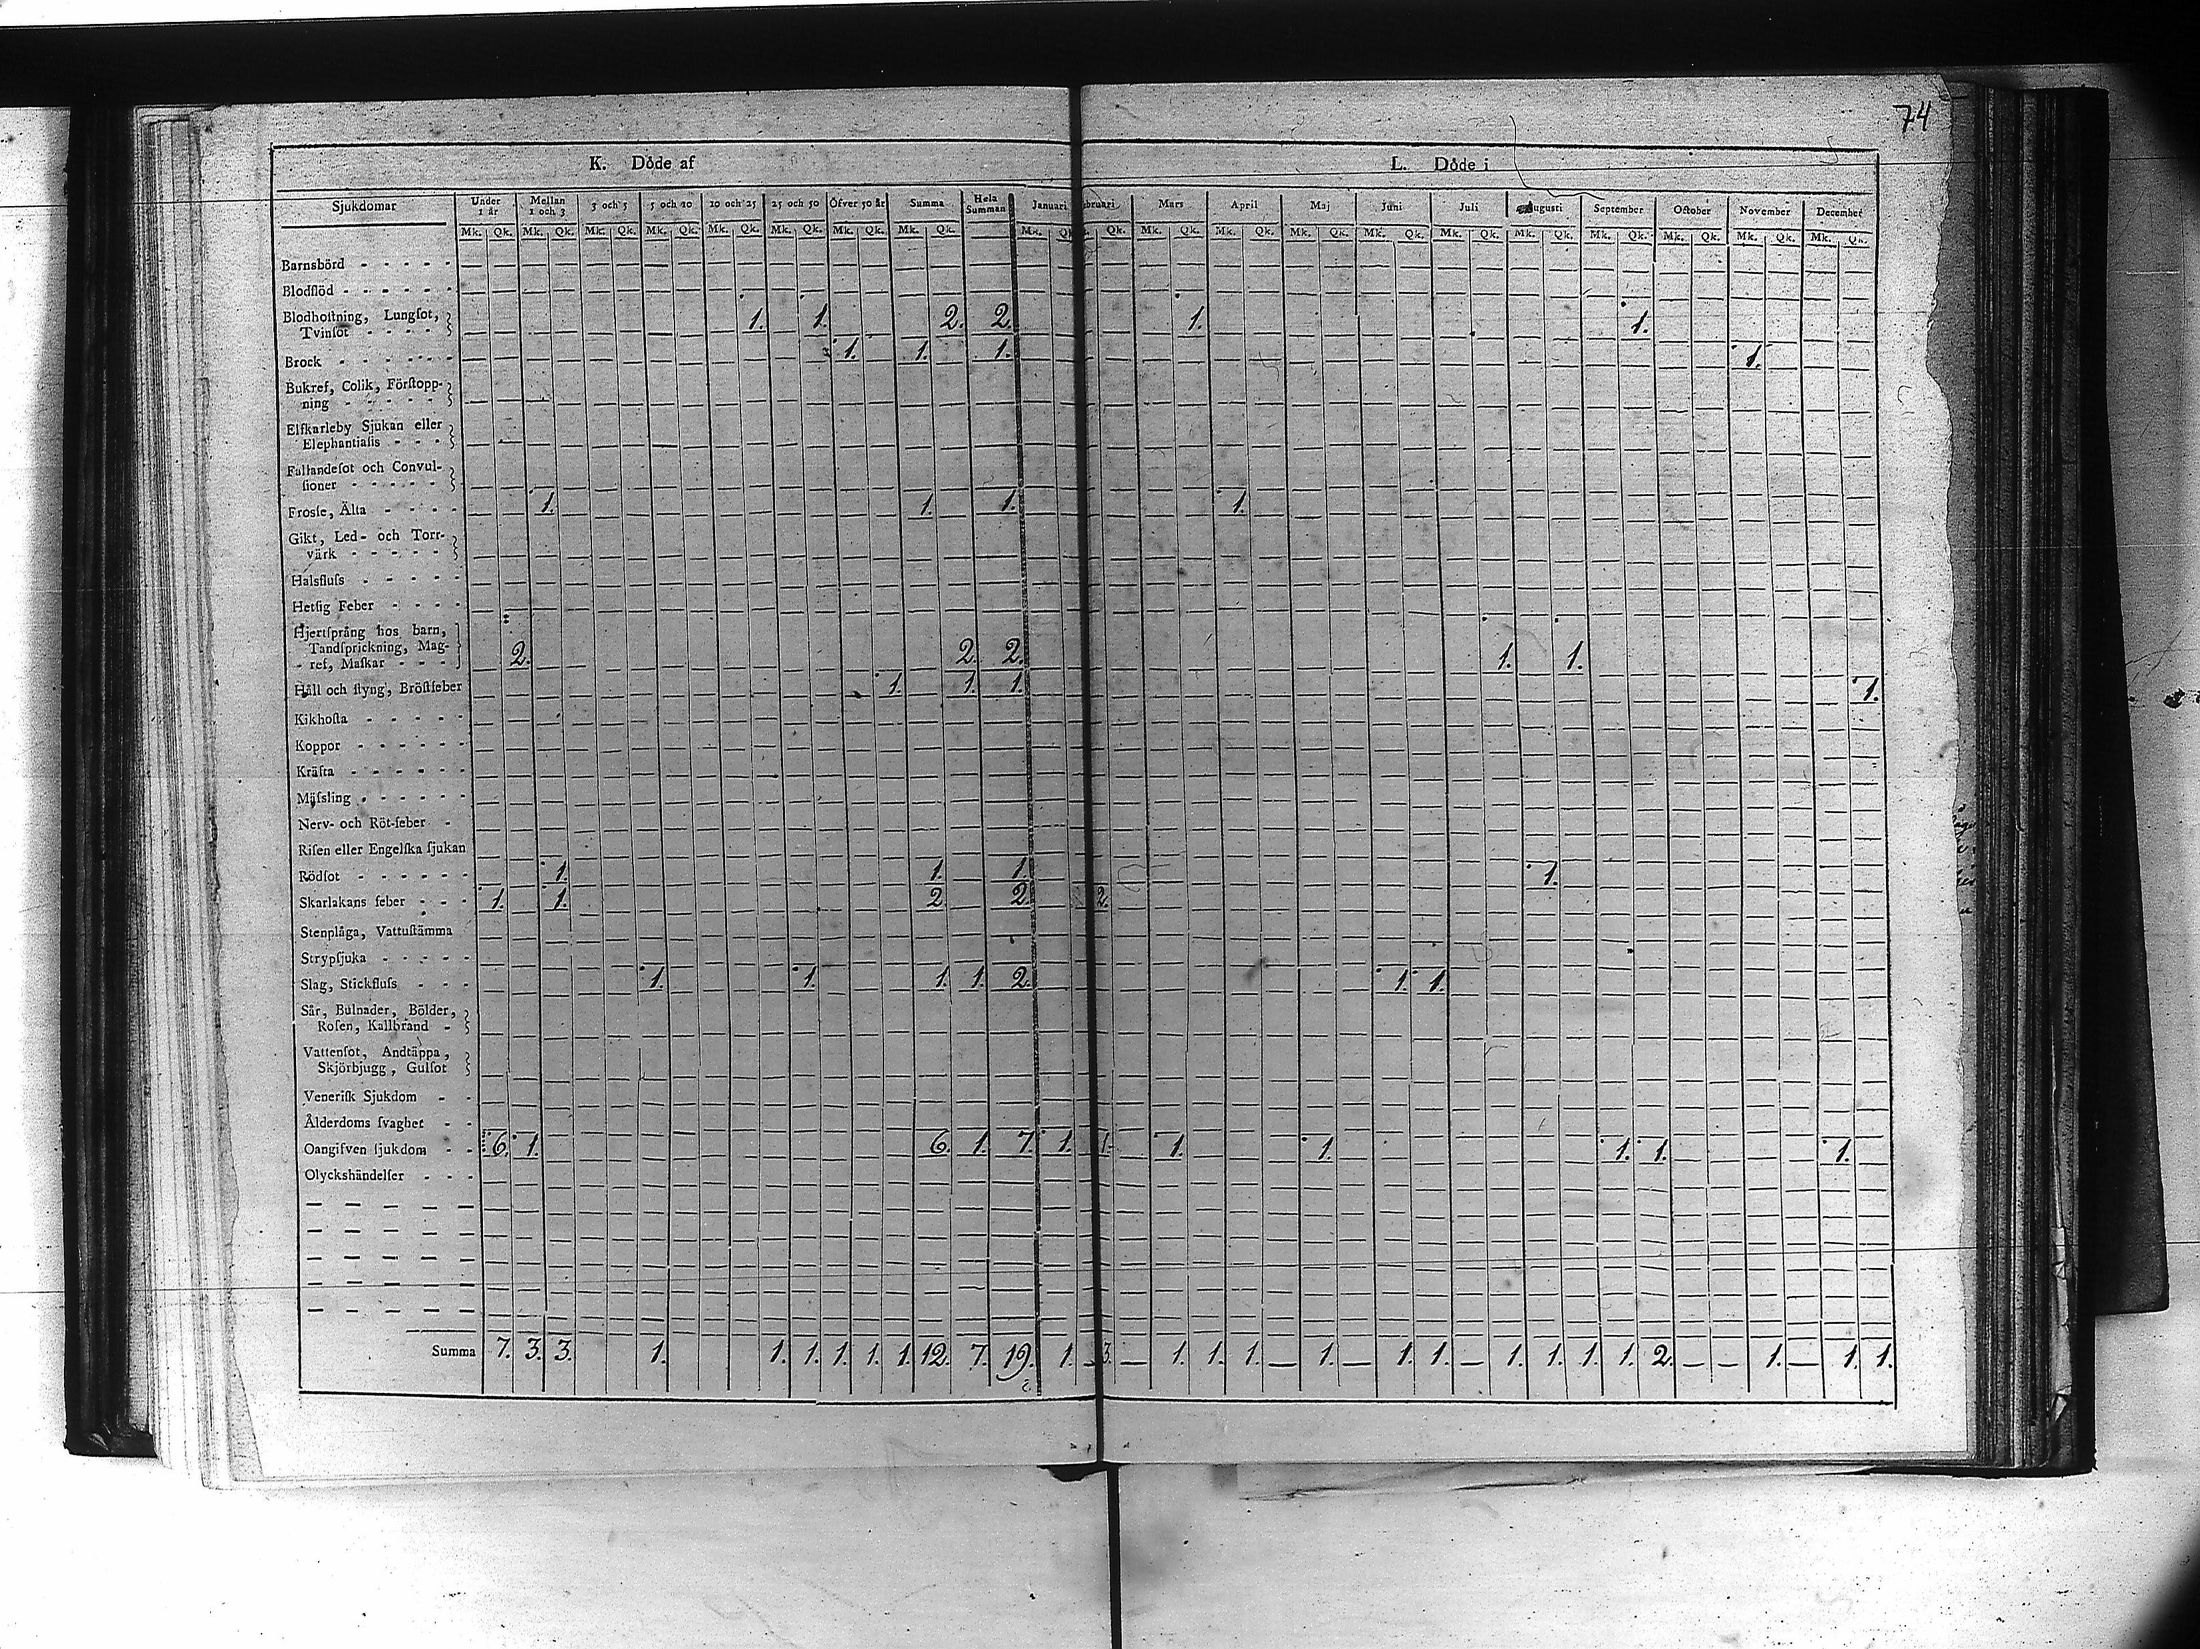 74
K. Döde af L. Döde i
Sjukdomar Under 1 år Mellan 1 och 3 3 och 5 5 och 10 10 och 25 25 och 50 Öfver 50 år Summa Hela Summan Januari bruari Mars April Maj Juni Juli Augusti September October November December
Mk. Qk. Mk. Qk. Mk. Qk. Mk. Qk. Mk. Qk. Mk. Qk. Mk. Qk. Mk. Qk. Mk. Qk. Mk. Qk. Mk. Qk. Mk. Qk. Mk. Qk. Mk. Qk. Mk. Qk. Mk. Qk. Mk. Qk. Mk. Qk. Mk. Qk.
Barnsbörd - - - - -
Blodflöd - - - - - -
Blodhoſtning, Lungſot,
Tvinſot - - - - 1. 1. 2. 2. 1. 1.
Brock - - - - - - 1. 1. 1. 1.
Bukref, Colik, Förſtopp-
ning - - - - -
Elfkarleby Sjukan eller
Elephantiaſis - - -
Fallandeſot och Convul-
ſioner - - - - -
Froſſe, Älta - - - - 1. 1. 1. 1.
Gikt, Led- och Torr-
värk - - - - -
Halsfluſs - - - - -
Hetſig Feber - - - -
Hjertſprång hos barn,
Tandſprickning, Mag-
ref, Maſkar - - - 2. 2. 2. 1. 1.
Håll och ſtyng, Bröſtfeber 1. 1. 1. 1.
Kikhoſta - - - - -
Koppor - - - - - -
Kräfta - - - - - -
Mäſsling - - - - -
Nerv- och Röt-feber -
Riſen eller Engelſka ſjukan
Rödſot - - - - - - 1. 1. 1. 1.
Skarlakans feber - - - 1. 1. 2 2. 2.
Stenplåga, Vattuſtämma
Strypſjuka - - - - -
Slag, Stickfluſs - - - 1. 1. 1. 1. 2. 1. 1.
Sår, Bulnader, Bölder,
Roſen, Kallbrand -
Vattenſot, Andtäppa,
Skjörbjugg, Gulſot
Veneriſk Sjukdom - -
Ålderdoms ſvaghet - -
Oangifven ſjukdom - - 6. 1. 6. 1. 7. 1. 1. 1. 1. 1. 1. 1.
Olyckshändelſer - - -
Summa 7. 3. 3. 1. 1. 1. 1. 1. 1. 12. 7. 19. 1. 3. — 1. 1. 1. — 1. — 1. 1. — 1. 1. 1. 1. 2. — — 1. — 1. 1.